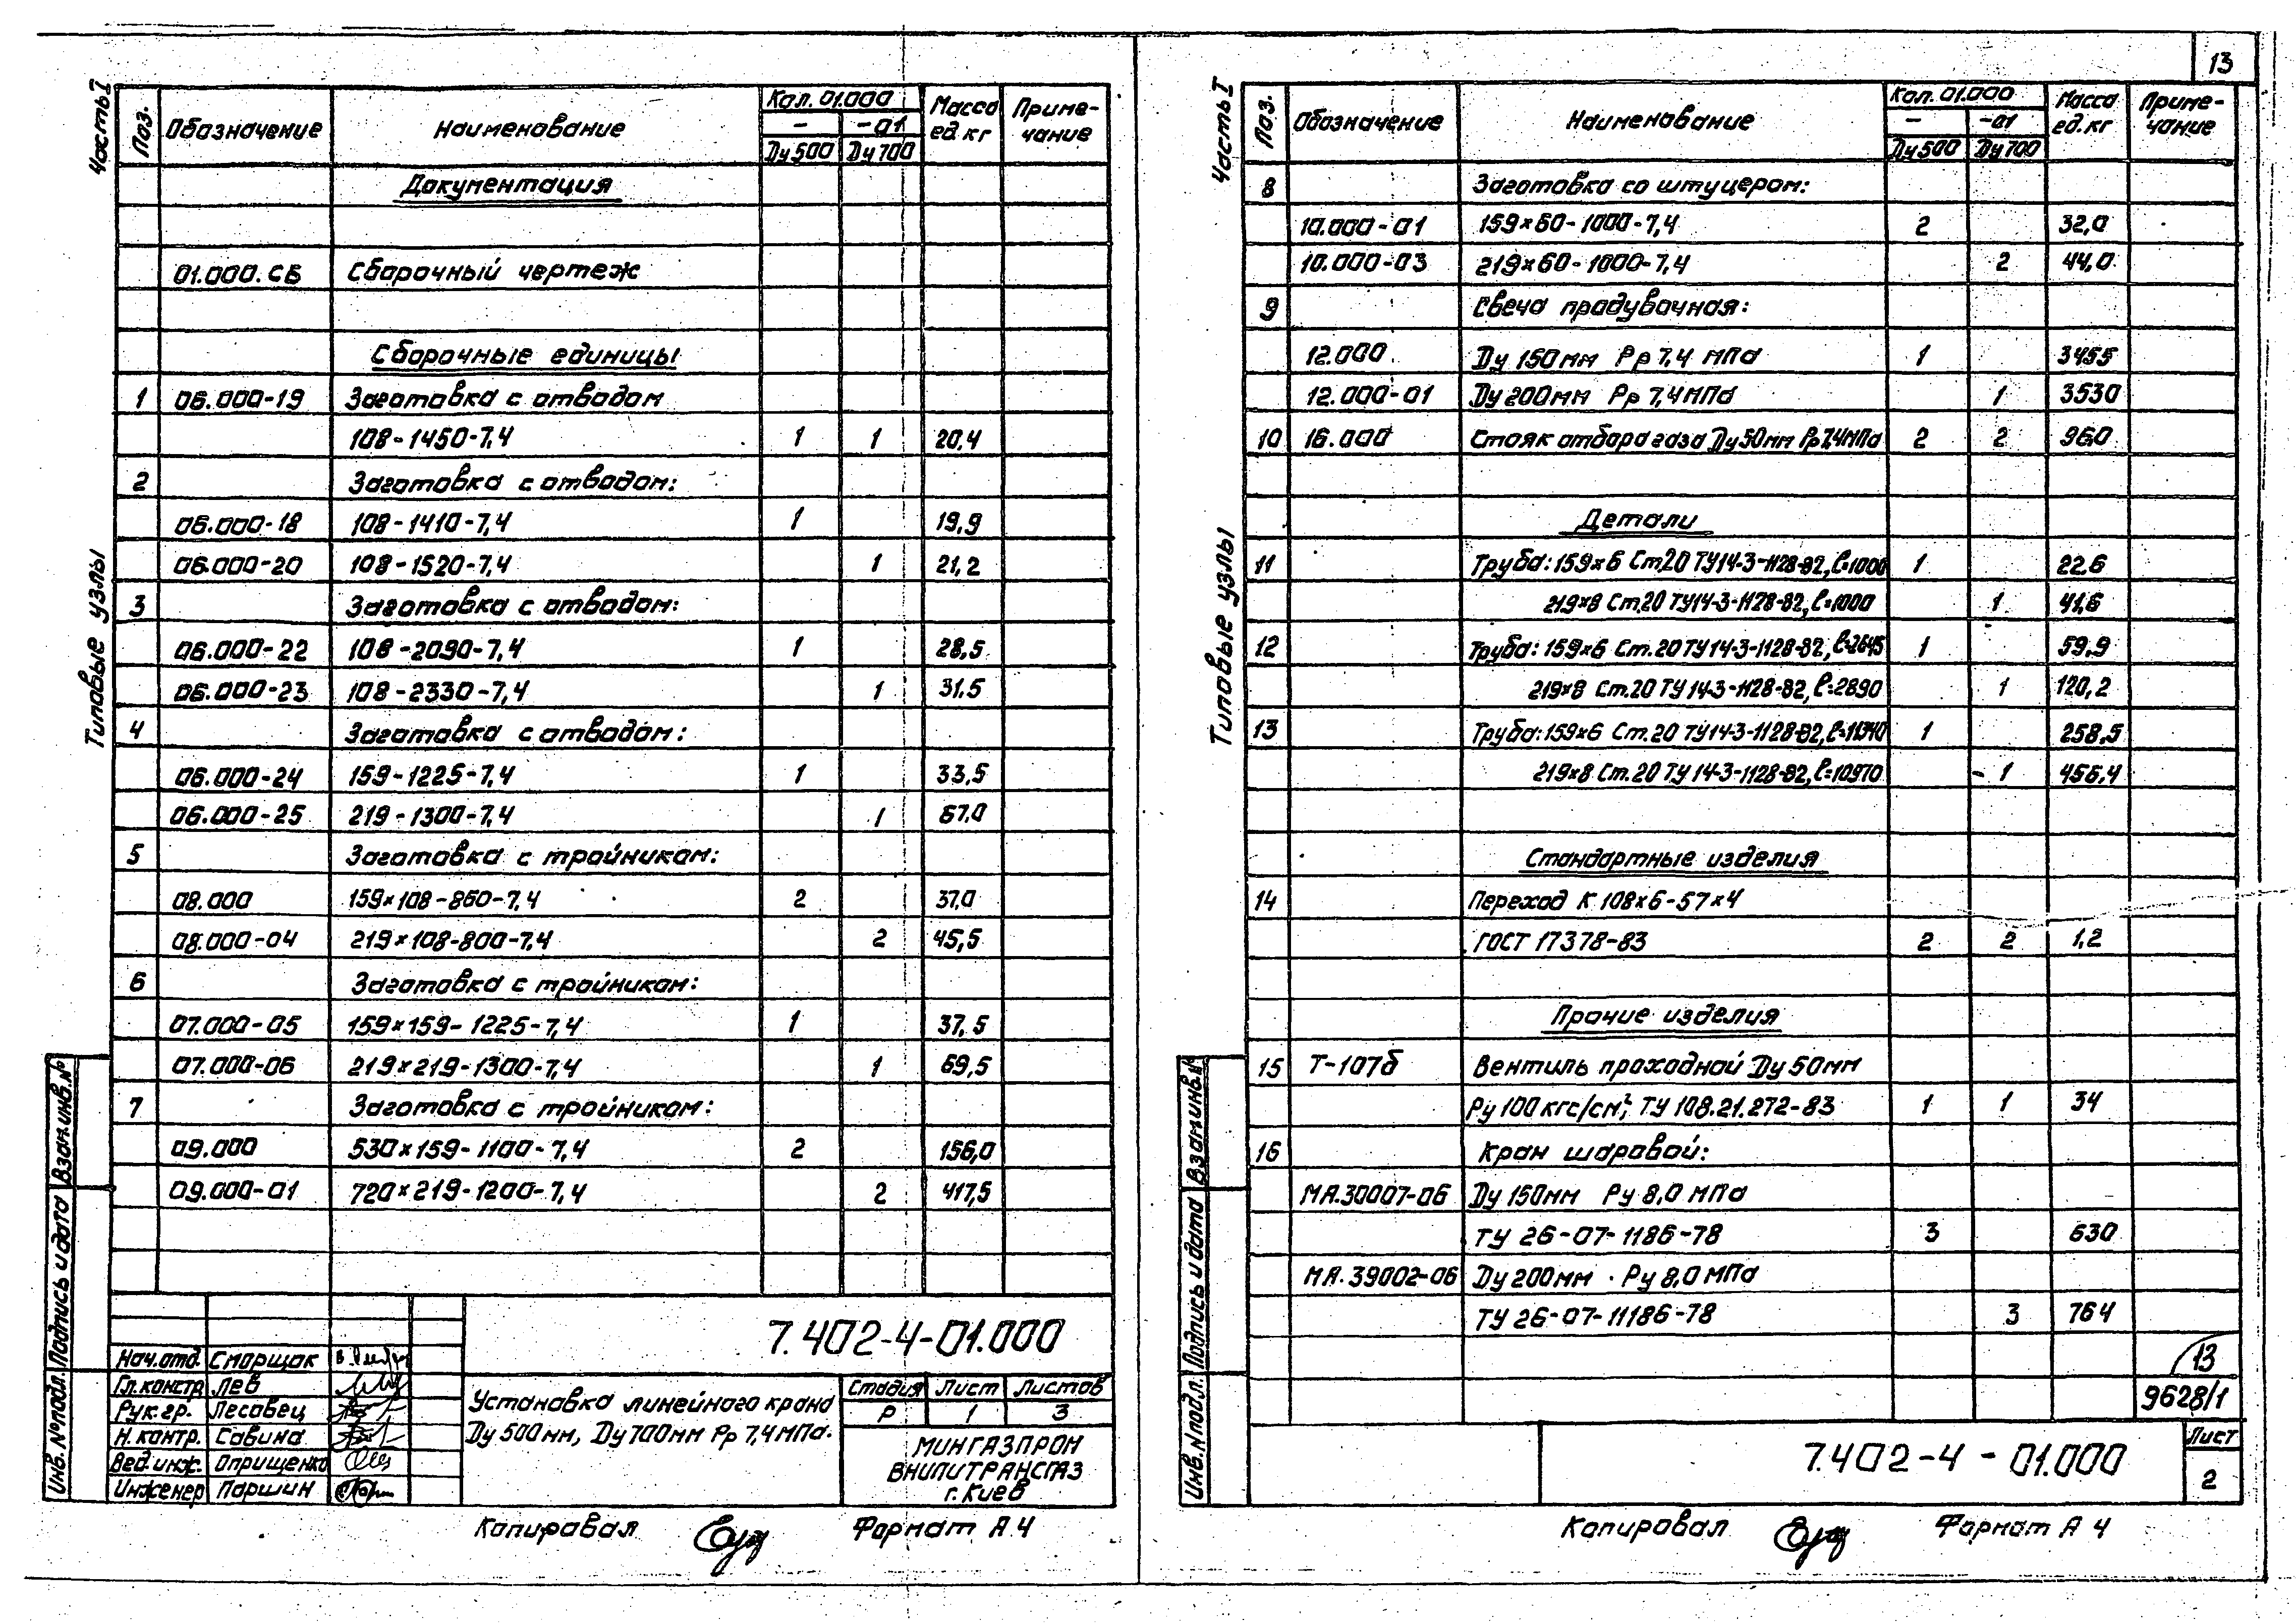 Часть I
Типовые узлы
Поз. Обозначение Наименование Кол. 01.000 Масса ед. кг Приме-чание
- -01
Ду 500 Ду 700
Документация
01.000.СБ Сборочный чертеж
Сборочные единицы
1 06.000-19 Заготовка с отводом
108-1450-7,4 1 1 20,4
2 Заготовка с отводом:
06.000-18 108-1410-7,4 1 19,9
06.000-20 108-1520-7,4 1 21,2
3 Заготовка с отводом:
06.000-22 108-2090-7,4 1 28,5
06.000-23 108-2330-7,4 1 31.5
4 Заготовка с отводом:
06.000-24 159-1225-7,4 1 33,5
06.000-25 219-1300-7,4 1 67.0
5 Заготовка с тройником:
08.000 159×108-860-7,4 2 37,0
08.000-04 219×108-800-7,4 2 45,5
6 Заготовка с тройником:
07.000-05 159×159-1225-7,4 1 37,5
07.000-06 219×219-1300-7,4 1 69,5
7 Заготовка с тройником:
09.000 530×159-1100-7,4 2 156,0
09.000-01 720×219-1200-7,4 2 417,5
Инв.№подл. Подпись и дата Взам.инв.№
7.402-4-01.000
Нач.отд. Сморщак
Гл.констр Лев
Рук.гр. Лесовец
Н.контр. Савина
Вед.инж. Оприщенко
Инженер Паршин
Установка линейного крана
Ду 500мм, Ду 700мм Рр 7,4 МПа.
Стадия Лист Листов
Р 1 3
МИНГАЗПРОМ
ВНИПИТРАНСГАЗ
г. Киев
Копировал Формат А4
13
Часть I
Типовые узлы
Поз. Обозначение Наименование Кол. 01.000 Масса ед. кг Приме-чание
- -01
Ду 500 Ду 700
8 Заготовка со штуцером:
10.000-01 159×60-1000-7,4 2 32,0
10.000-03 219×60-1000-7,4 2 44,0
9 Свеча продувочная:
12.000 Ду 150мм Рр 7,4 МПа 1 345,5
12.000-01 Ду 200мм Рр 7,4 МПа 1 353,0
10 16.000 Стояк отбора газа Ду 50мм Рр 7,4МПа 2 2 96,0
Детали
11 Труба: 159×6 Ст.20 ТУ14-3-1128-82, ℓ=1000 1 22.6
219×8 Ст.20 ТУ14-3-1128-82, ℓ=1000 1 41,6
12 Труба: 159×6 Ст.20 ТУ14-3-1128-82, ℓ=2645 1 59,9
219×8 Ст.20 ТУ14-3-1128-82, ℓ=2890 1 120,2
13 Труба: 159×6 Ст.20 ТУ14-3-1128-82, ℓ=11340 1 258,5
219×8 Ст.20 ТУ14-3-1128-82, ℓ=10970 -1 456,4
Стандартные изделия
14 Переход К 108×6-57×4
ГОСТ 17378-83 2 2 1,2
Прочие изделия
15 Т-107б Вентиль проходной Ду 50мм
Ру 100 кгс/см², ТУ 108.21.272-83 1 1 34
16 Кран шаровой:
МА.30007-06 Ду 150мм Ру 8,0 МПа
ТУ 26-07-1186-78 3 630
МА.39002-06 Ду 200мм Ру 8,0 МПа
ТУ 26-07-11186-78 3 764
13
9628/1
Инв.№подл. Подпись и дата Взам.инв.№
7.402-4-01.000
Лист
2
Копировал Формат А4